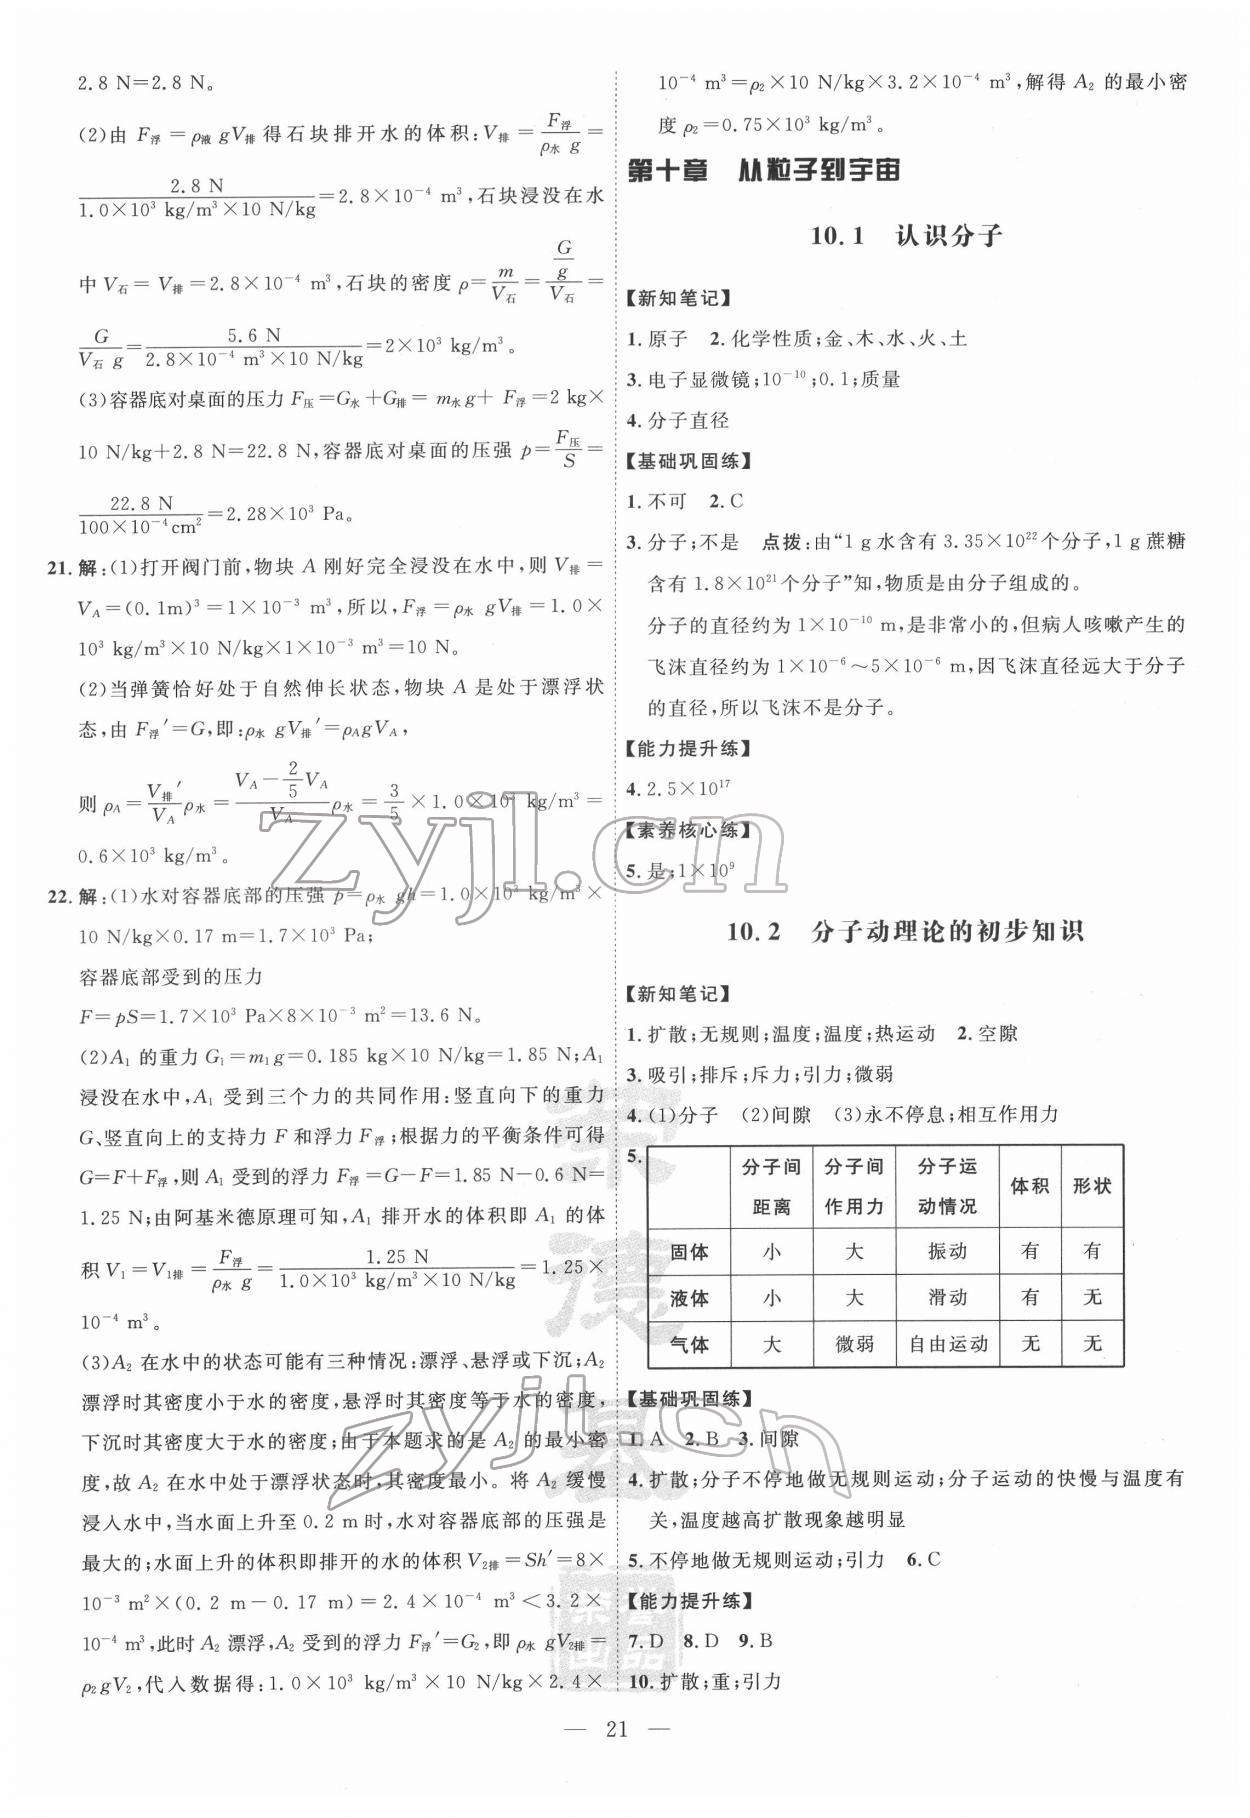 2.8 N=2.8 N。
(2)由 F浮=ρ液 gV排 得石块排开水的体积:V排=F浮/(ρ水 g)=
2.8 N/(1.0×10³ kg/m³×10 N/kg)=2.8×10⁻⁴ m³,石块浸没在水
中 V石= V排=2.8×10⁻⁴ m³,石块的密度 ρ=m/V石=(G/g)/V石=
G/(V石 g)=5.6 N/(2.8×10⁻⁴ m³×10 N/kg)=2×10³ kg/m³。
(3)容器底对桌面的压力 F压=G水+G排= m水g+ F浮=2 kg×
10 N/kg+2.8 N=22.8 N,容器底对桌面的压强 p=F压/S=
22.8 N/(100×10⁻⁴cm²)=2.28×10³ Pa。
21.解:(1)打开阀门前,物块 A 刚好完全浸没在水中,则 V排=
VA=(0.1m)³=1×10⁻³ m³,所以,F浮=ρ水 gV排=1.0×
10³ kg/m³×10 N/kg×1×10⁻³ m³=10 N。
(2)当弹簧恰好处于自然伸长状态,物块 A 是处于漂浮状
态,由 F浮′=G,即:ρ水 gV排′=ρAgVA,
则 ρA=V排′/VA ρ水=(VA-2/5VA)/VA ρ水=3/5×1.0×10³ kg/m³=
0.6×10³ kg/m³。
22.解:(1)水对容器底部的压强 p=ρ水 gh=1.0×10³ kg/m³×
10 N/kg×0.17 m=1.7×10³ Pa;
容器底部受到的压力
F=pS=1.7×10³ Pa×8×10⁻³ m²=13.6 N。
(2)A₁ 的重力 G₁=m₁g=0.185 kg×10 N/kg=1.85 N;A₁
浸没在水中,A₁ 受到三个力的共同作用:竖直向下的重力
G、竖直向上的支持力 F 和浮力 F浮;根据力的平衡条件可得
G=F+F浮,则 A₁ 受到的浮力 F浮=G-F=1.85 N-0.6 N=
1.25 N;由阿基米德原理可知,A₁ 排开水的体积即 A₁ 的体
积 V₁=V₁排=F浮/(ρ水 g)=1.25 N/(1.0×10³ kg/m³×10 N/kg)=1.25×
10⁻⁴ m³。
(3)A₂ 在水中的状态可能有三种情况:漂浮、悬浮或下沉;A₂
漂浮时其密度小于水的密度,悬浮时其密度等于水的密度,
下沉时其密度大于水的密度;由于本题求的是 A₂ 的最小密
度,故 A₂ 在水中处于漂浮状态时,其密度最小。将 A₂ 缓慢
浸入水中,当水面上升至 0.2 m时,水对容器底部的压强是
最大的;水面上升的体积即排开的水的体积 V₂排=Sh′=8×
10⁻³ m²×(0.2 m-0.17 m)=2.4×10⁻⁴ m³<3.2×
10⁻⁴ m³,此时 A₂ 漂浮,A₂ 受到的浮力 F浮′=G₂,即 ρ水 gV₂排=
ρ₂gV₂,代入数据得:1.0×10³ kg/m³×10 N/kg×2.4×
10⁻⁴ m³=ρ₂×10 N/kg×3.2×10⁻⁴ m³,解得 A₂ 的最小密
度 ρ₂=0.75×10³ kg/m³。
第十章 从粒子到宇宙
10.1 认识分子
【新知笔记】
1.原子 2.化学性质;金、木、水、火、土
3.电子显微镜;10⁻¹⁰;0.1;质量
4.分子直径
【基础巩固练】
1.不可 2.C
3.分子;不是 点拨:由“1 g水含有 3.35×10²²个分子,1 g蔗糖
含有 1.8×10²¹个分子”知,物质是由分子组成的。
分子的直径约为 1×10⁻¹⁰ m,是非常小的,但病人咳嗽产生的
飞沫直径约为 1×10⁻⁶～5×10⁻⁶ m,因飞沫直径远大于分子
的直径,所以飞沫不是分子。
【能力提升练】
4.2.5×10¹⁷
【素养核心练】
5.是;1×10⁹
10.2 分子动理论的初步知识
【新知笔记】
1.扩散;无规则;温度;温度;热运动 2.空隙
3.吸引;排斥;斥力;引力;微弱
4.(1)分子 (2)间隙 (3)永不停息;相互作用力
5. 分子间距离 分子间作用力 分子运动情况 体积 形状
固体 小 大 振动 有 有
液体 小 大 滑动 有 无
气体 大 微弱 自由运动 无 无
【基础巩固练】
1.A 2.B 3.间隙
4.扩散;分子不停地做无规则运动;分子运动的快慢与温度有
关,温度越高扩散现象越明显
5.不停地做无规则运动;引力 6.C
【能力提升练】
7.D 8.D 9.B
10.扩散;重;引力
— 21 —
zyjl.cn
zyjl.cn
荣德基